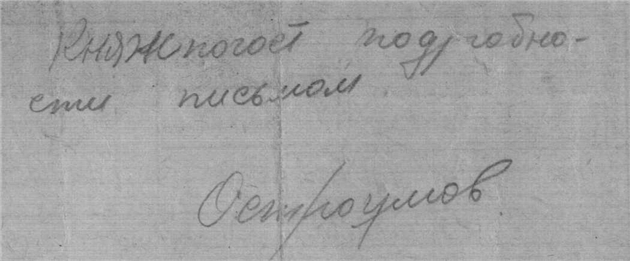 Княжпогост подробно-
сти письмом.
Остроумов